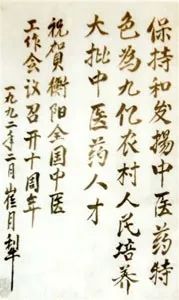 保持和发揚中医药特
色為九亿农村人民培养
大批中医药人才
祝賀衡阳全国中医
工作会议召开十周年
一九九二年二月崔月犁